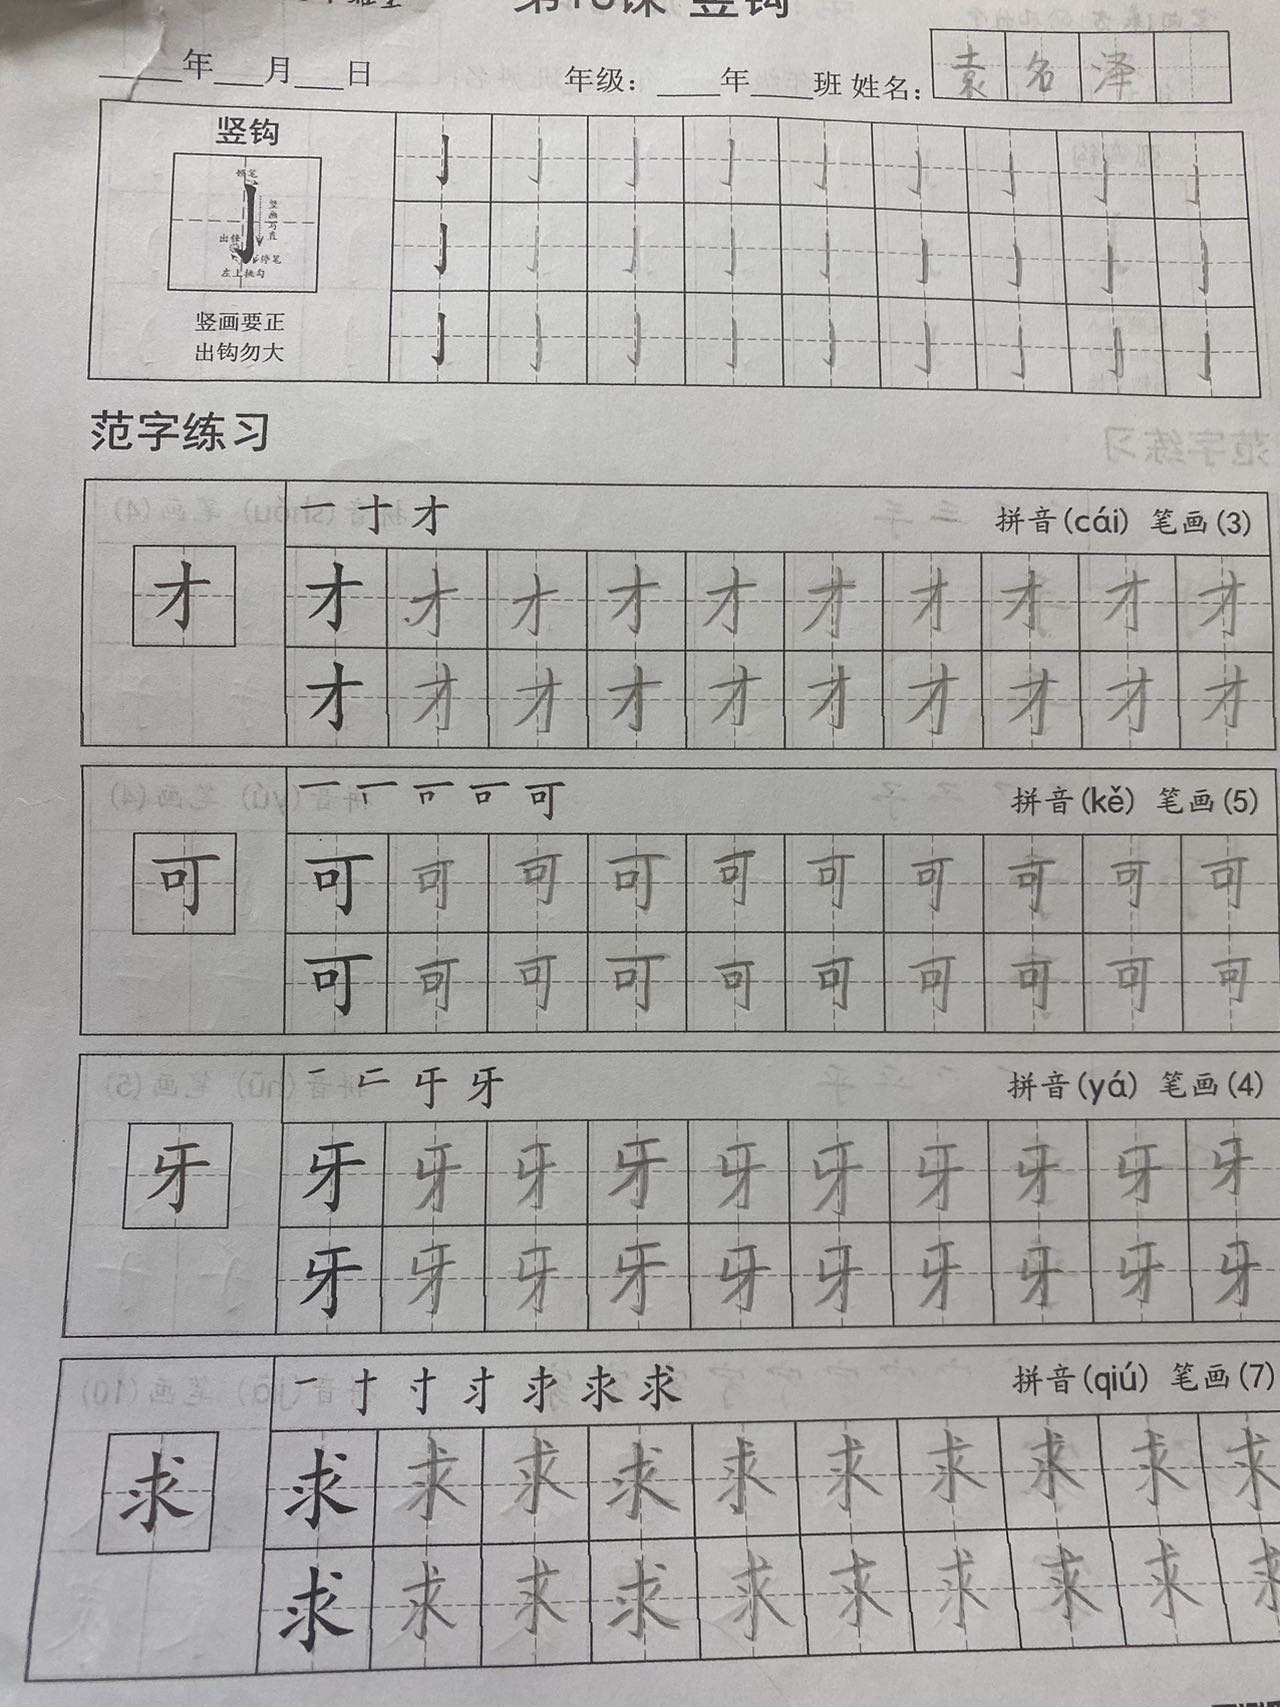 竖钩
年 月 日 年级： 年 班 姓名： 袁名泽
竖钩
竖画写直
出锋
停笔
左上挑勾
竖画要正
出钩勿大
亅亅亅亅亅亅亅亅亅
亅亅亅亅亅亅亅亅亅
亅亅亅亅亅亅亅亅亅
范字练习
一 十 才 拼音(cái) 笔画(3)
才
才才才才才才才才才才
才才才才才才才才才才
可 拼音(kě) 笔画(5)
可
可可可可可可可可可可
可可可可可可可可可可
牙 拼音(yá) 笔画(4)
牙
牙牙牙牙牙牙牙牙牙牙
牙牙牙牙牙牙牙牙牙牙
求 拼音(qiú) 笔画(7)
求
求求求求求求求求求求
求求求求求求求求求求